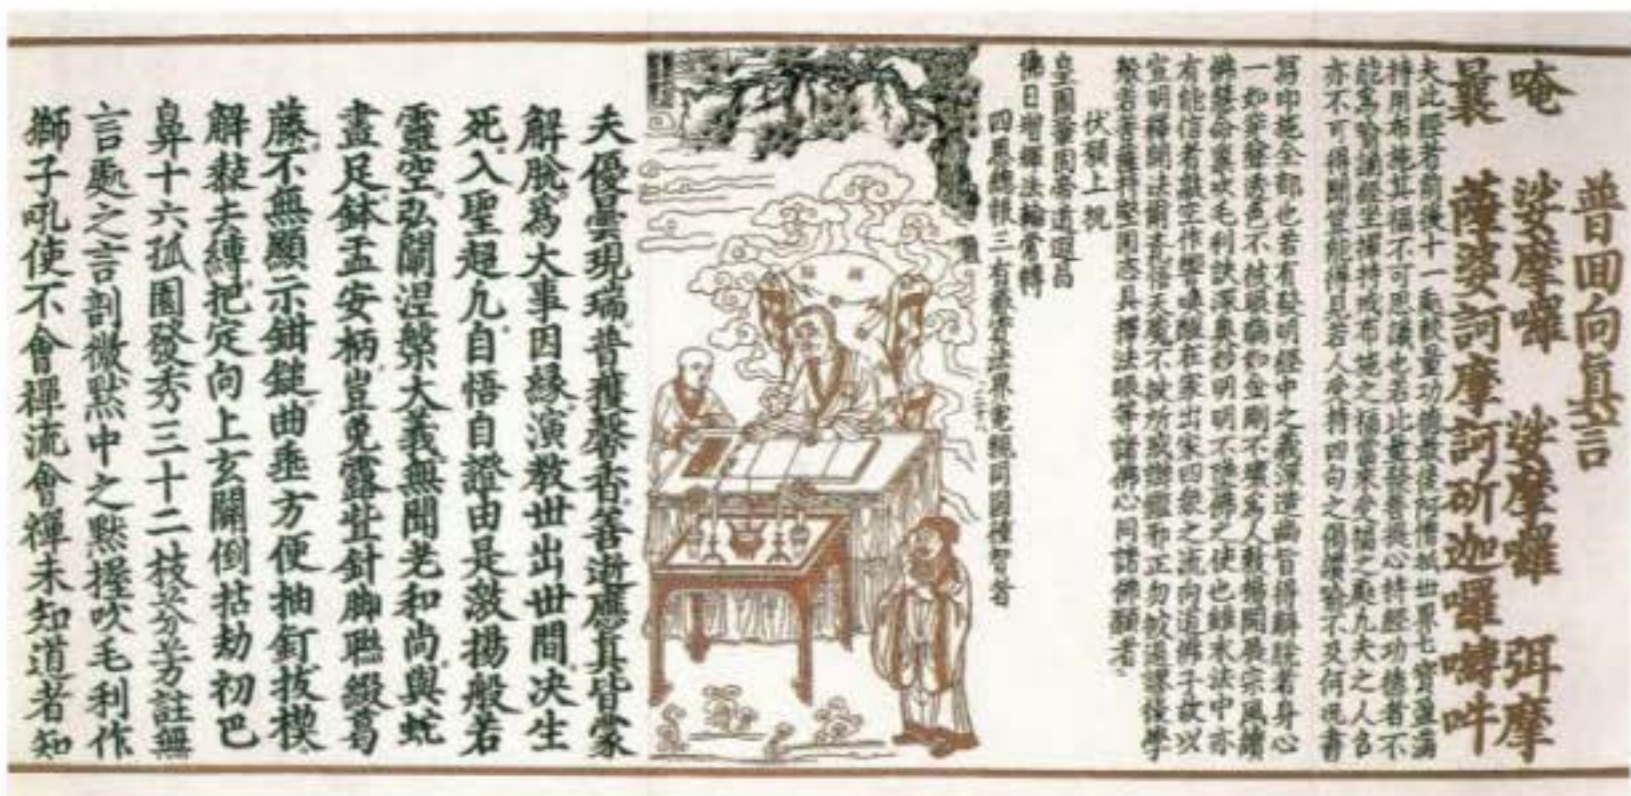 普回向真言
唵 娑摩囉 娑摩囉 弭摩
曩 薩婆訶摩訶斫迦囉嚩吽
夫此經者前後十一 量功德最後何惜 世界七寶盈滿
持用布施其福不可思議也若比 發菩提心持經功德者不
能為喻 經坐禪持戒布施之福當來受福之 凡夫之人名
亦不可得聞豈能得見若人受持四句之偈 喻不及何況書
寫印施全部也若有發明經中之義深達幽旨得 者身心
一如 色不被眼瞞如金剛不壞為人 揚開 宗風續
佛慧命 吹毛利 深奧妙明明不 佛之使也 末法中亦
有能信者 空作響喚醒在家出家四眾之流向道佛子故以
宣明釋開法 悟天魔不被所惑 邪正勿 後學
般若菩薩 堅固 具擇法眼等諸佛心同諸佛願者
伏願上祝
皇圖鞏固帝道遐昌
佛日增輝法輪常轉
四恩總報三有 法界 同圓種智者
夫優曇現瑞普獲馨香善逝應真皆蒙
解脫為大事因緣演教世出世間決生
死入聖超凡自悟自證由是激揚般若
靈空弘闡涅槃大義無聞老和尚與虵
畫足鉢盂安柄豈免露 針脚聯綴葛
藤不無顯示鉗鎚曲垂方便抽釘拔楔
解黏去縛把定向上玄關倒拈劫初巴
鼻十六孤園發秀三十二枝芬芳註無
言處之言剖微默中之默握吹毛利作
獅子吼使不會禪流會禪未知道者知